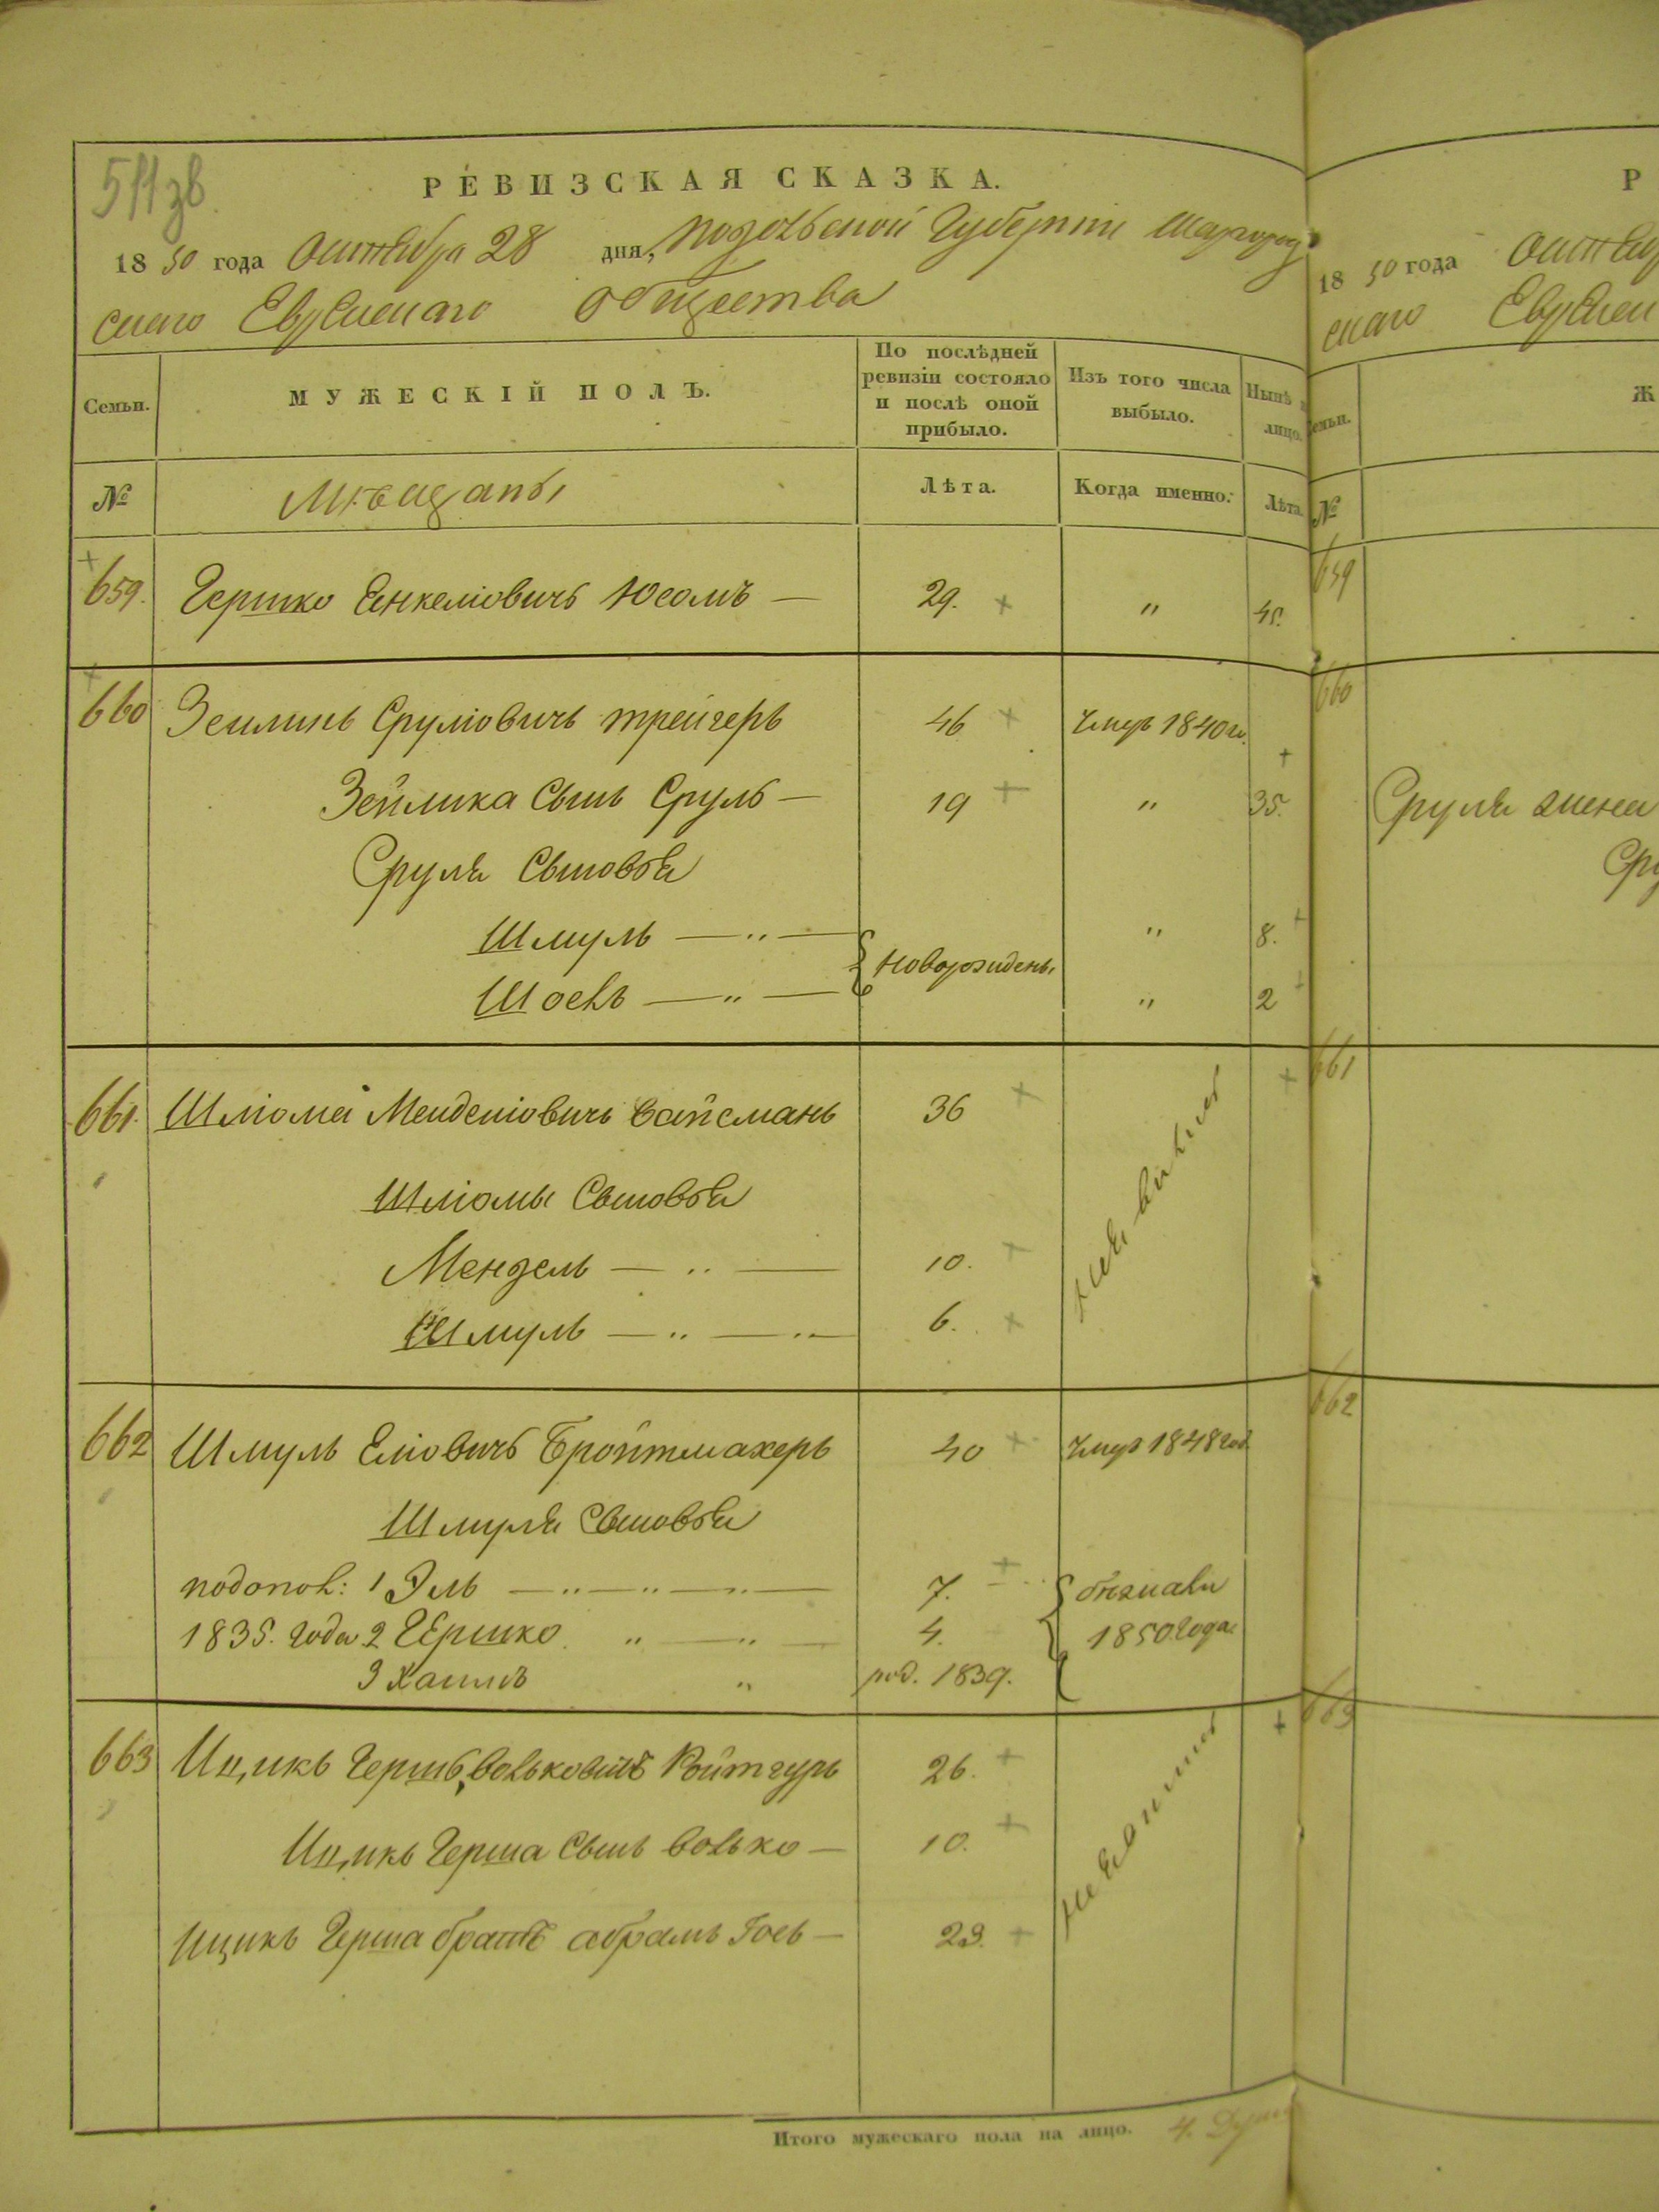 511зв
РЕВИЗСКАЯ СКАЗКА.
1850 года октября 28 дня, Подольской Губернии Шаргород
скаго Еврейскаго общества
Семьи.
МУЖЕСКІЙ ПОЛЪ.
По послѣдней
ревизіи состояло
и послѣ оной
прибыло.
Изъ того числа
выбыло.
Нынѣ
лицо.
№
Мѣщаны
Лѣта.
Когда именно.
Лѣта.
659. Гершко Енкеліовичъ 29. " 45.
660 Зейликъ Сруліовичъ трейгеръ 46 Умеръ 1840 г.
Зейлика Сынъ Сруль — 19 " 35.
Сруля Сыновья
Шмуль — " — " 8.
Новорождены
— " — " 2
661. Шліома Менделіовичъ Вайсманъ 36
Шліомы Сыновья
Мендель — " — 10.
Шмуль — " — " 6.
662 Шмуль Еліовичъ Бройтмахеръ 40 Умеръ 1848 год
Шмуля Сыновья
1 Эль — " — " — " — 7. бѣжали
1835. года 2 Гершко " — " — 4. 1850 года
3 Хаимъ " род. 1839.
663 Ицикъ Гершъ Вольковичъ 26.
Ицикъ Герша Сынъ Волько — 10.
Ицикъ Герша братъ Абрамъ — 23.
Итого мужескаго пола на лицо. 4. Души
Р
1850 года
скаго
Семьи.
Ж
№
659
660
Сруля жена
661
662
663